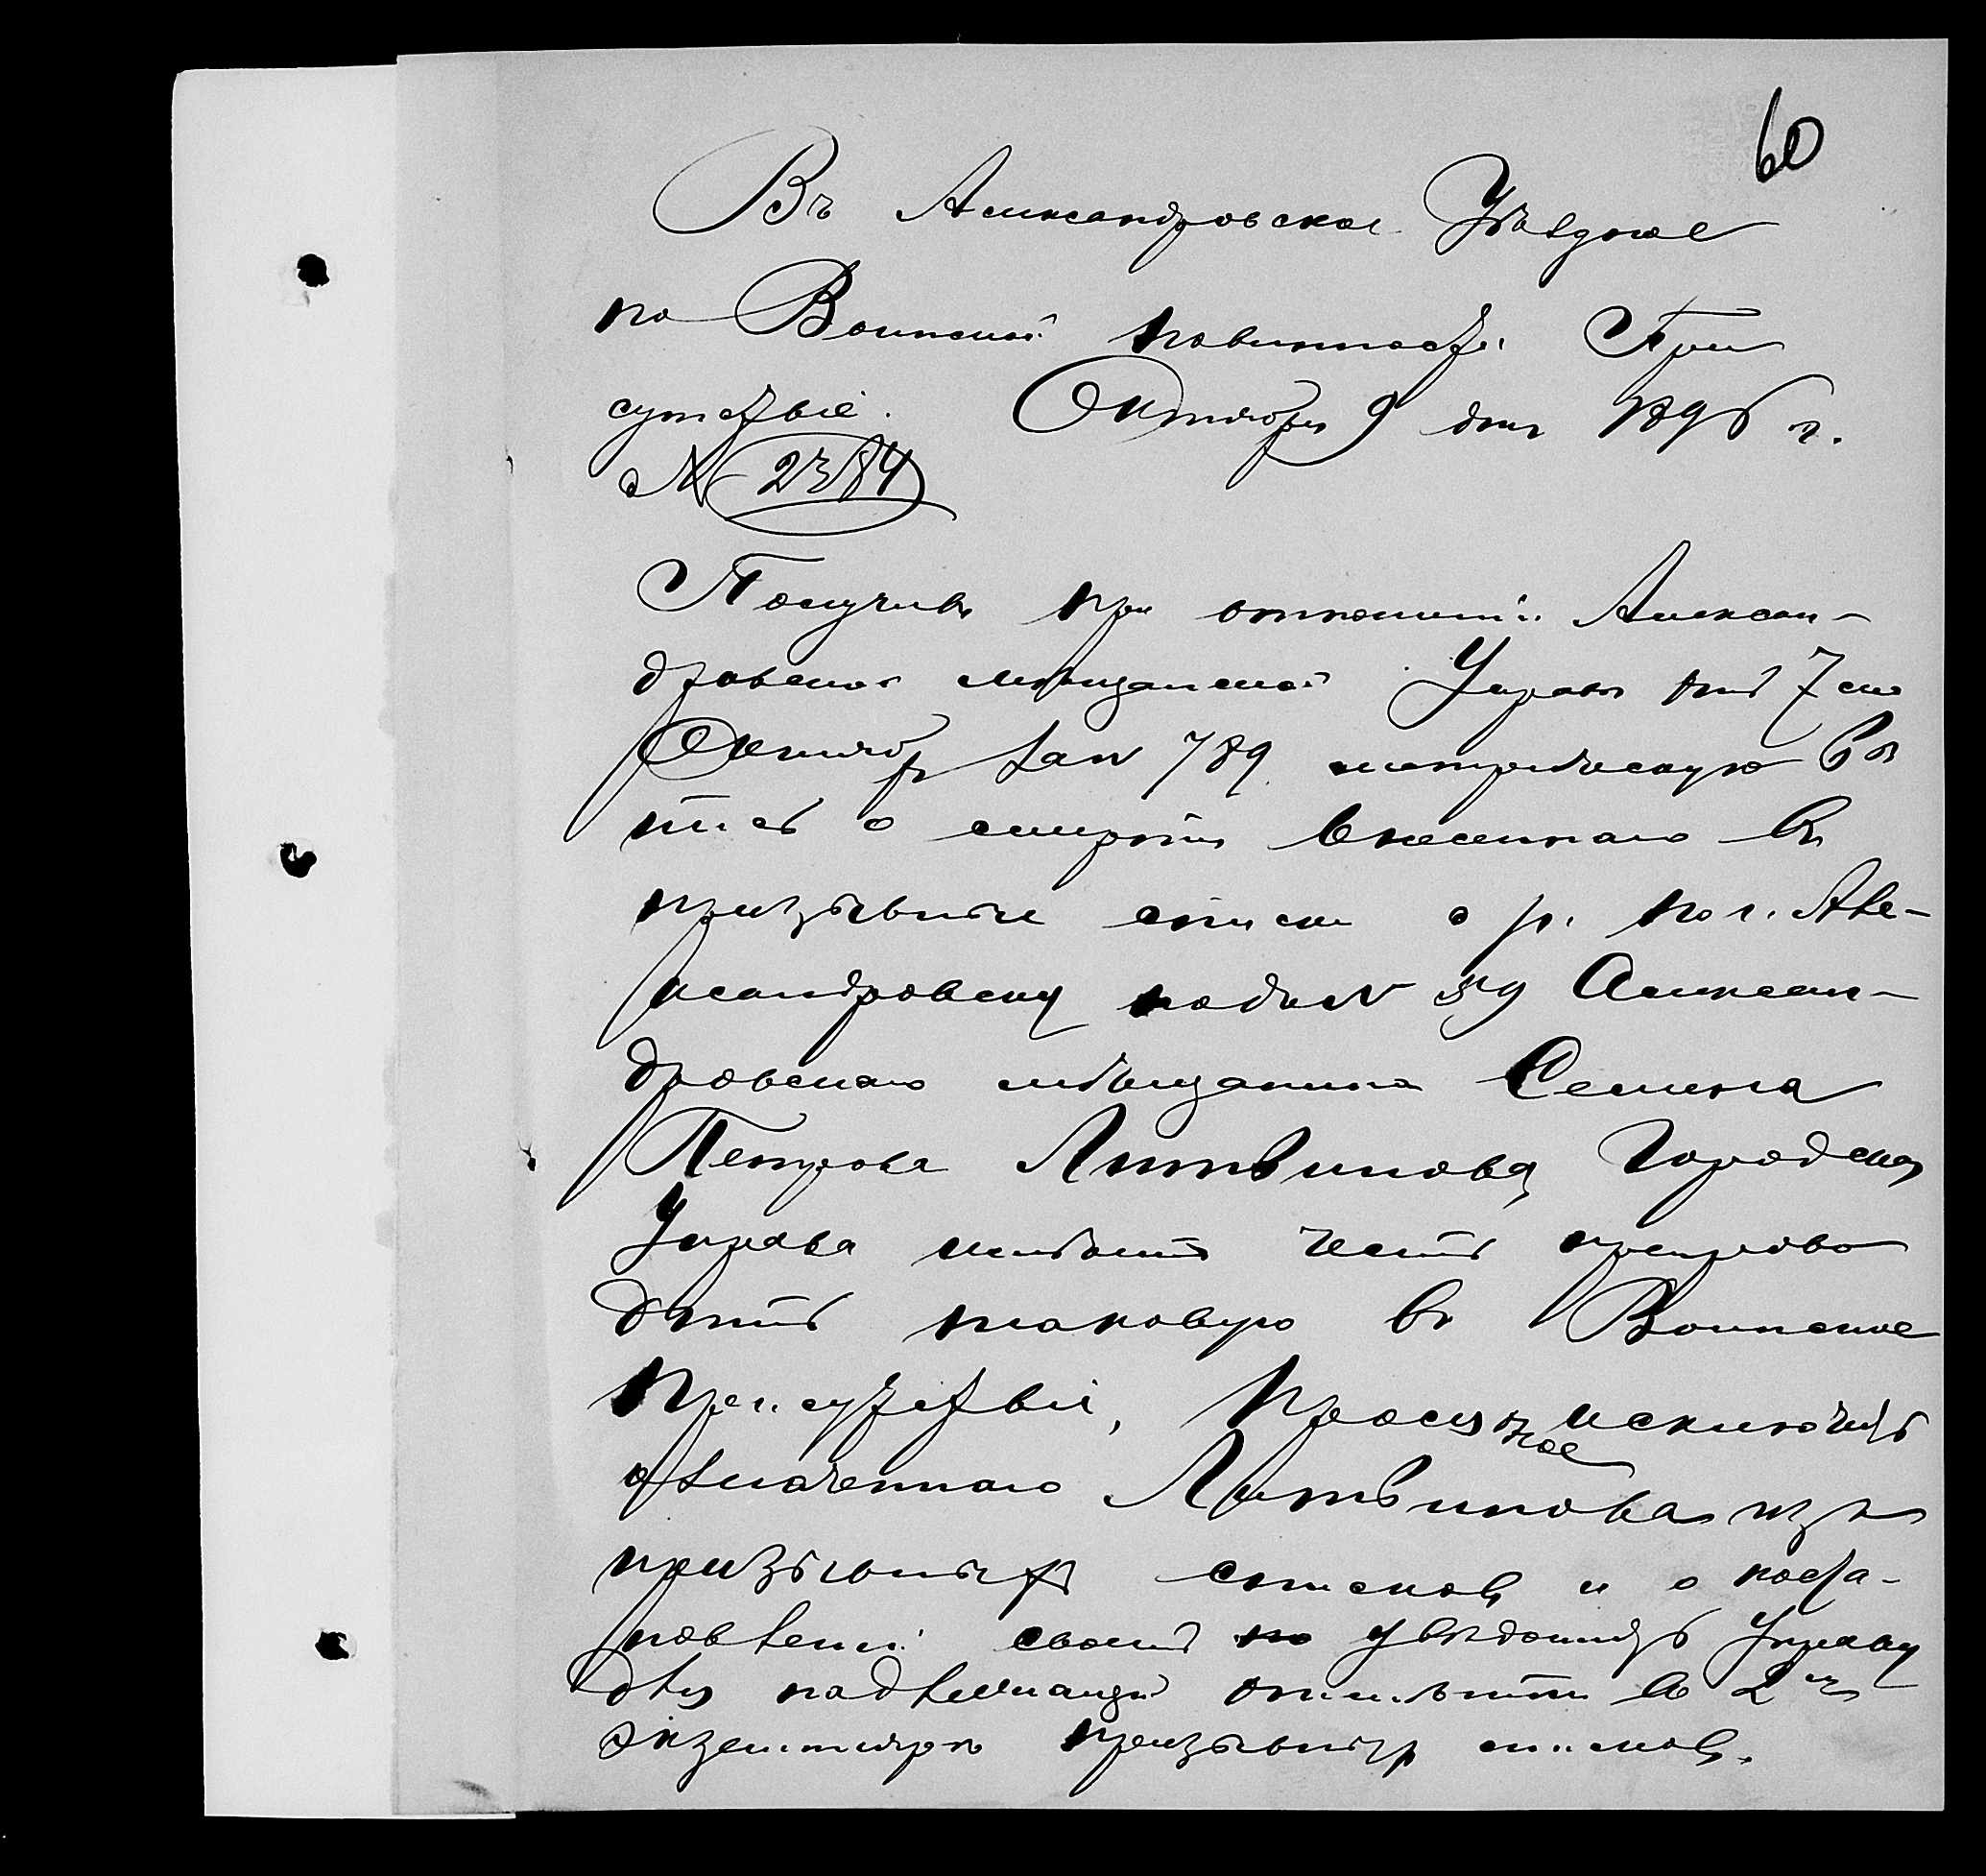 60
Въ Александровское Уѣздное
по Воинской повинности При
сутствіе. Октября 9 дня 1896 г.
№ 2384
Получивъ при отношеніи Алексан-
дровской мѣщанской Управы отъ 7 сего
Октября за № 789 метрическую вы
пись о смерти внесеннаго въ
призывные списки с/г. по г. Але-
ксандровску подъ № 59 Алексан-
дровскаго мѣщанина Семена
Петрова Литвинова, Городская
Управа имѣетъ честь препрово
дить таковую въ Воинское
Присутствіе, прося ое исключить
означеннаго Литвинова изъ
призывныхъ списковъ и о поста-
новленіи своемъ увѣдомить Управу
для надлежащей отмѣтки во 2мъ
экземплярѣ призывныхъ списковъ.